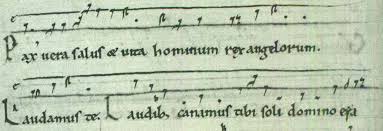 Pax vera salus & vita hominum rex angelorum.
Laudamus te. Laudib; canamus tibi soli domino